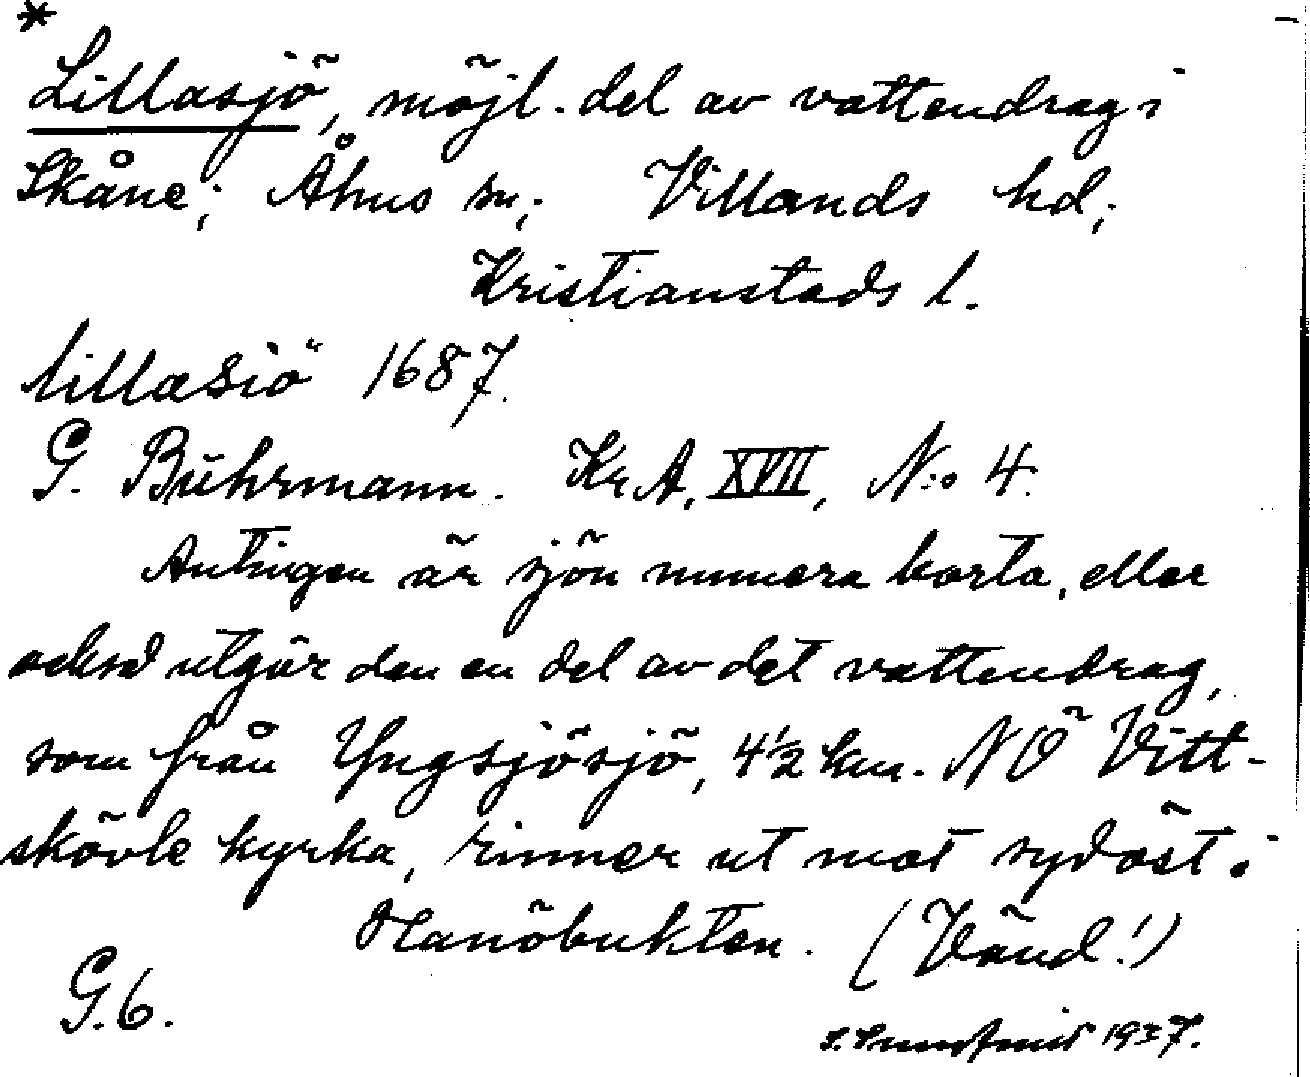 *
Lillasjö, möjl. del av vattendrag i
Skåne; Åhus sn; Villands hd;
Kristianstads l.
lillasiö 1687.
G. Bührmann. Kr.A. XVII, N:o 4.
Antingen är sjön numera borta, eller
också utgör den en del av det vattendrag,
som från Yngsjösjö, 4½ km. NÖ Vitt-
skövle kyrka, rinner ut mot sydöst i
Hanöbukten. (Vänd!)
G.6.
1937.